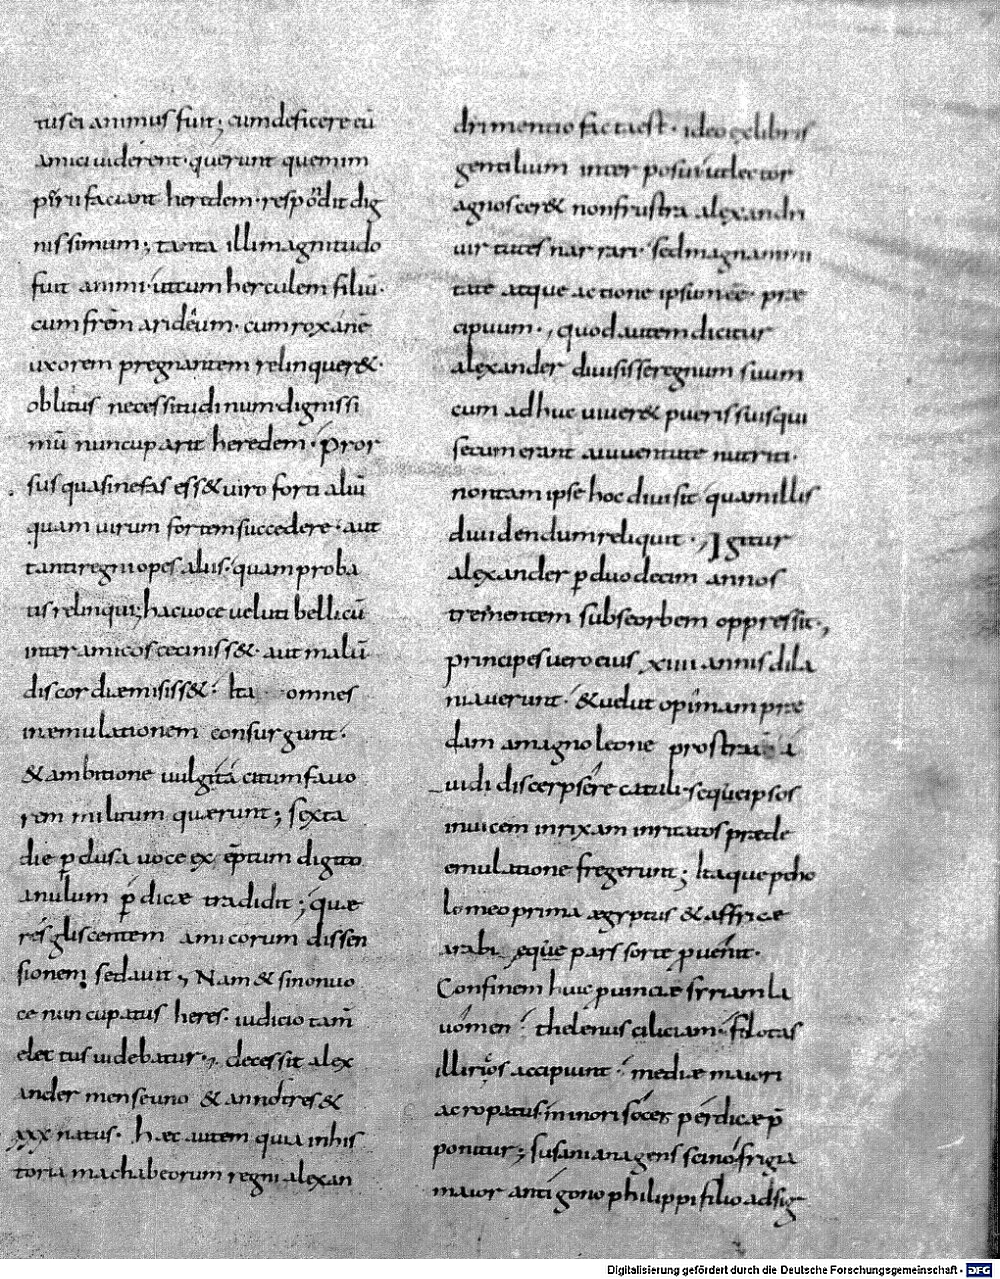 tus ei animus fuit; cum deficere eū
amici viderent· querunt quem im
perii faciant heredem· respōdit dig
nissimum; tanta illi magnitudo
fuit animi· ut cum herculem filiū·
cum frēm arideum· cum roxanē
uxorem pregnantem relinquer&·
oblitus necessitudinum· dignissi
mū nuncuparit heredem· Pror
sus quasi nefas ess& viro forti aliū
quam virum fortem succedere· aut
tanti regni opes aliis· quam proba
tis relinqui; hac voce veluti bellicū
inter amicos ceciniss&· aut malū
discordiæ misiss&· Ita omnes
in æmulationem consurgunt·
& ambitione vulgi tacitum favo
rem militum quærunt; sexta
die p̄clusa voce exēptum digito
anulum p̄dicæ tradidit; quæ
res gliscentem amicorum dissen
sionem sedavit; Nam & si non vo
ce nuncupatus heres· iudicio tam̄
electus videbatur; decessit alex
ander mense uno & annos tres &
xxx natus· hæc autem quia in his
toria machabeorum regni alexan
dri mentio facta est· ideo ex libris
gentilium inter posui ut lector
agnoscer& non frustra alexandri
virtutes narrari· sed magnanimi
tate atque actione ipsum eē· præ
cipuum·, quod autem dicitur
alexander divisisse regnum suum
cum adhuc viver& pueris suis qui
secum erant a iuventute nutriti·
non tam ipse hoc divisit quam illis
dividendum reliquit·, Igitur
alexander p duodecim annos
trementem sub se orbem oppressit·,
principes vero eius xiiii annis dila
niaverunt· & velut opimam præ
dam a magno leone prostratā a
vidi discerpsere catuli· seque ipsos
invicem in rixam inritatos prede
emulatione fregerunt; Itaque ptho
lomeo prima ægyptus & affricæ
arabiæque pars sorte pvenit·
Confinem huic pvinciæ syriam la
uomen· thelenus ciliciam· filotas
illirios accipiunt· mediæ maiori
acropatus· minori socer perdicæ p̄
ponitur; susiana gens scino· frigia
maior antigono philippi filio adsig